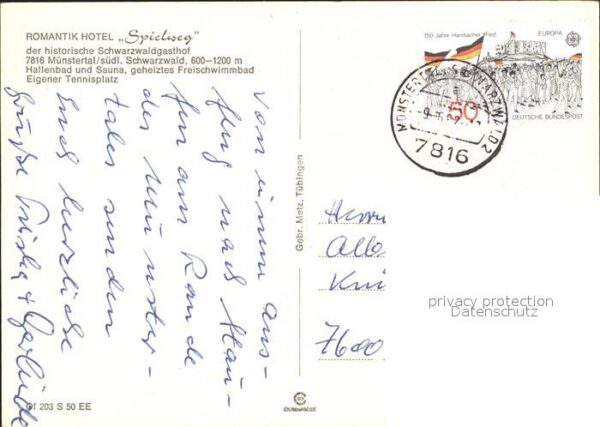 ROMANTIK HOTEL „Spielweg“
der historische Schwarzwaldgasthof
7816 Münstertal/südl. Schwarzwald, 600—1200 m
Hallenbad und Sauna, geheiztes Freischwimmbad
Eigener Tennisplatz
Von einem Aus-
flug nach Stau-
fen am Rande
des Münster-
tales senden
Euch herzliche
Grüße
Gebr. Metz, Tübingen
150 Jahre Hambacher Fest
EUROPA
50
DEUTSCHE BUNDESPOST
MÜNSTERTAL, SCHWARZWALD 2
7816
Herrn
7600
privacy protection
Datenschutz
203 S 50 EE